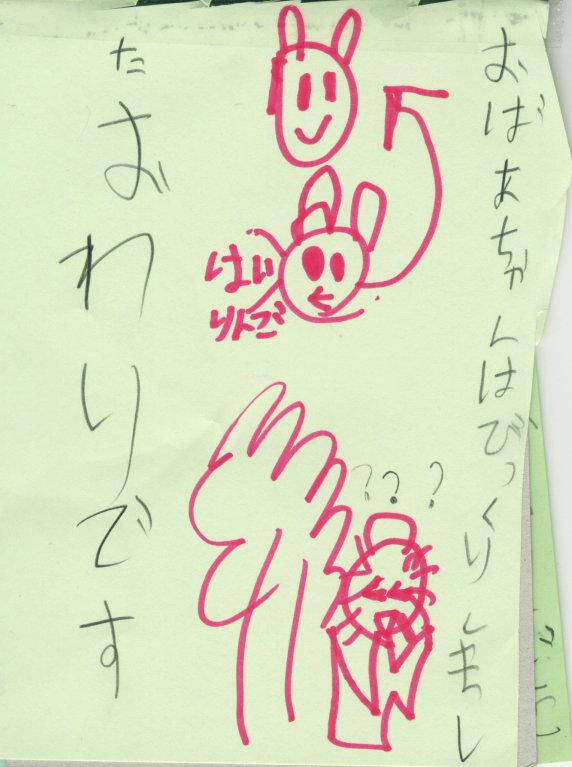 おばあちゃんはびっくりしまし
???
はい
りんご
た
おわりです